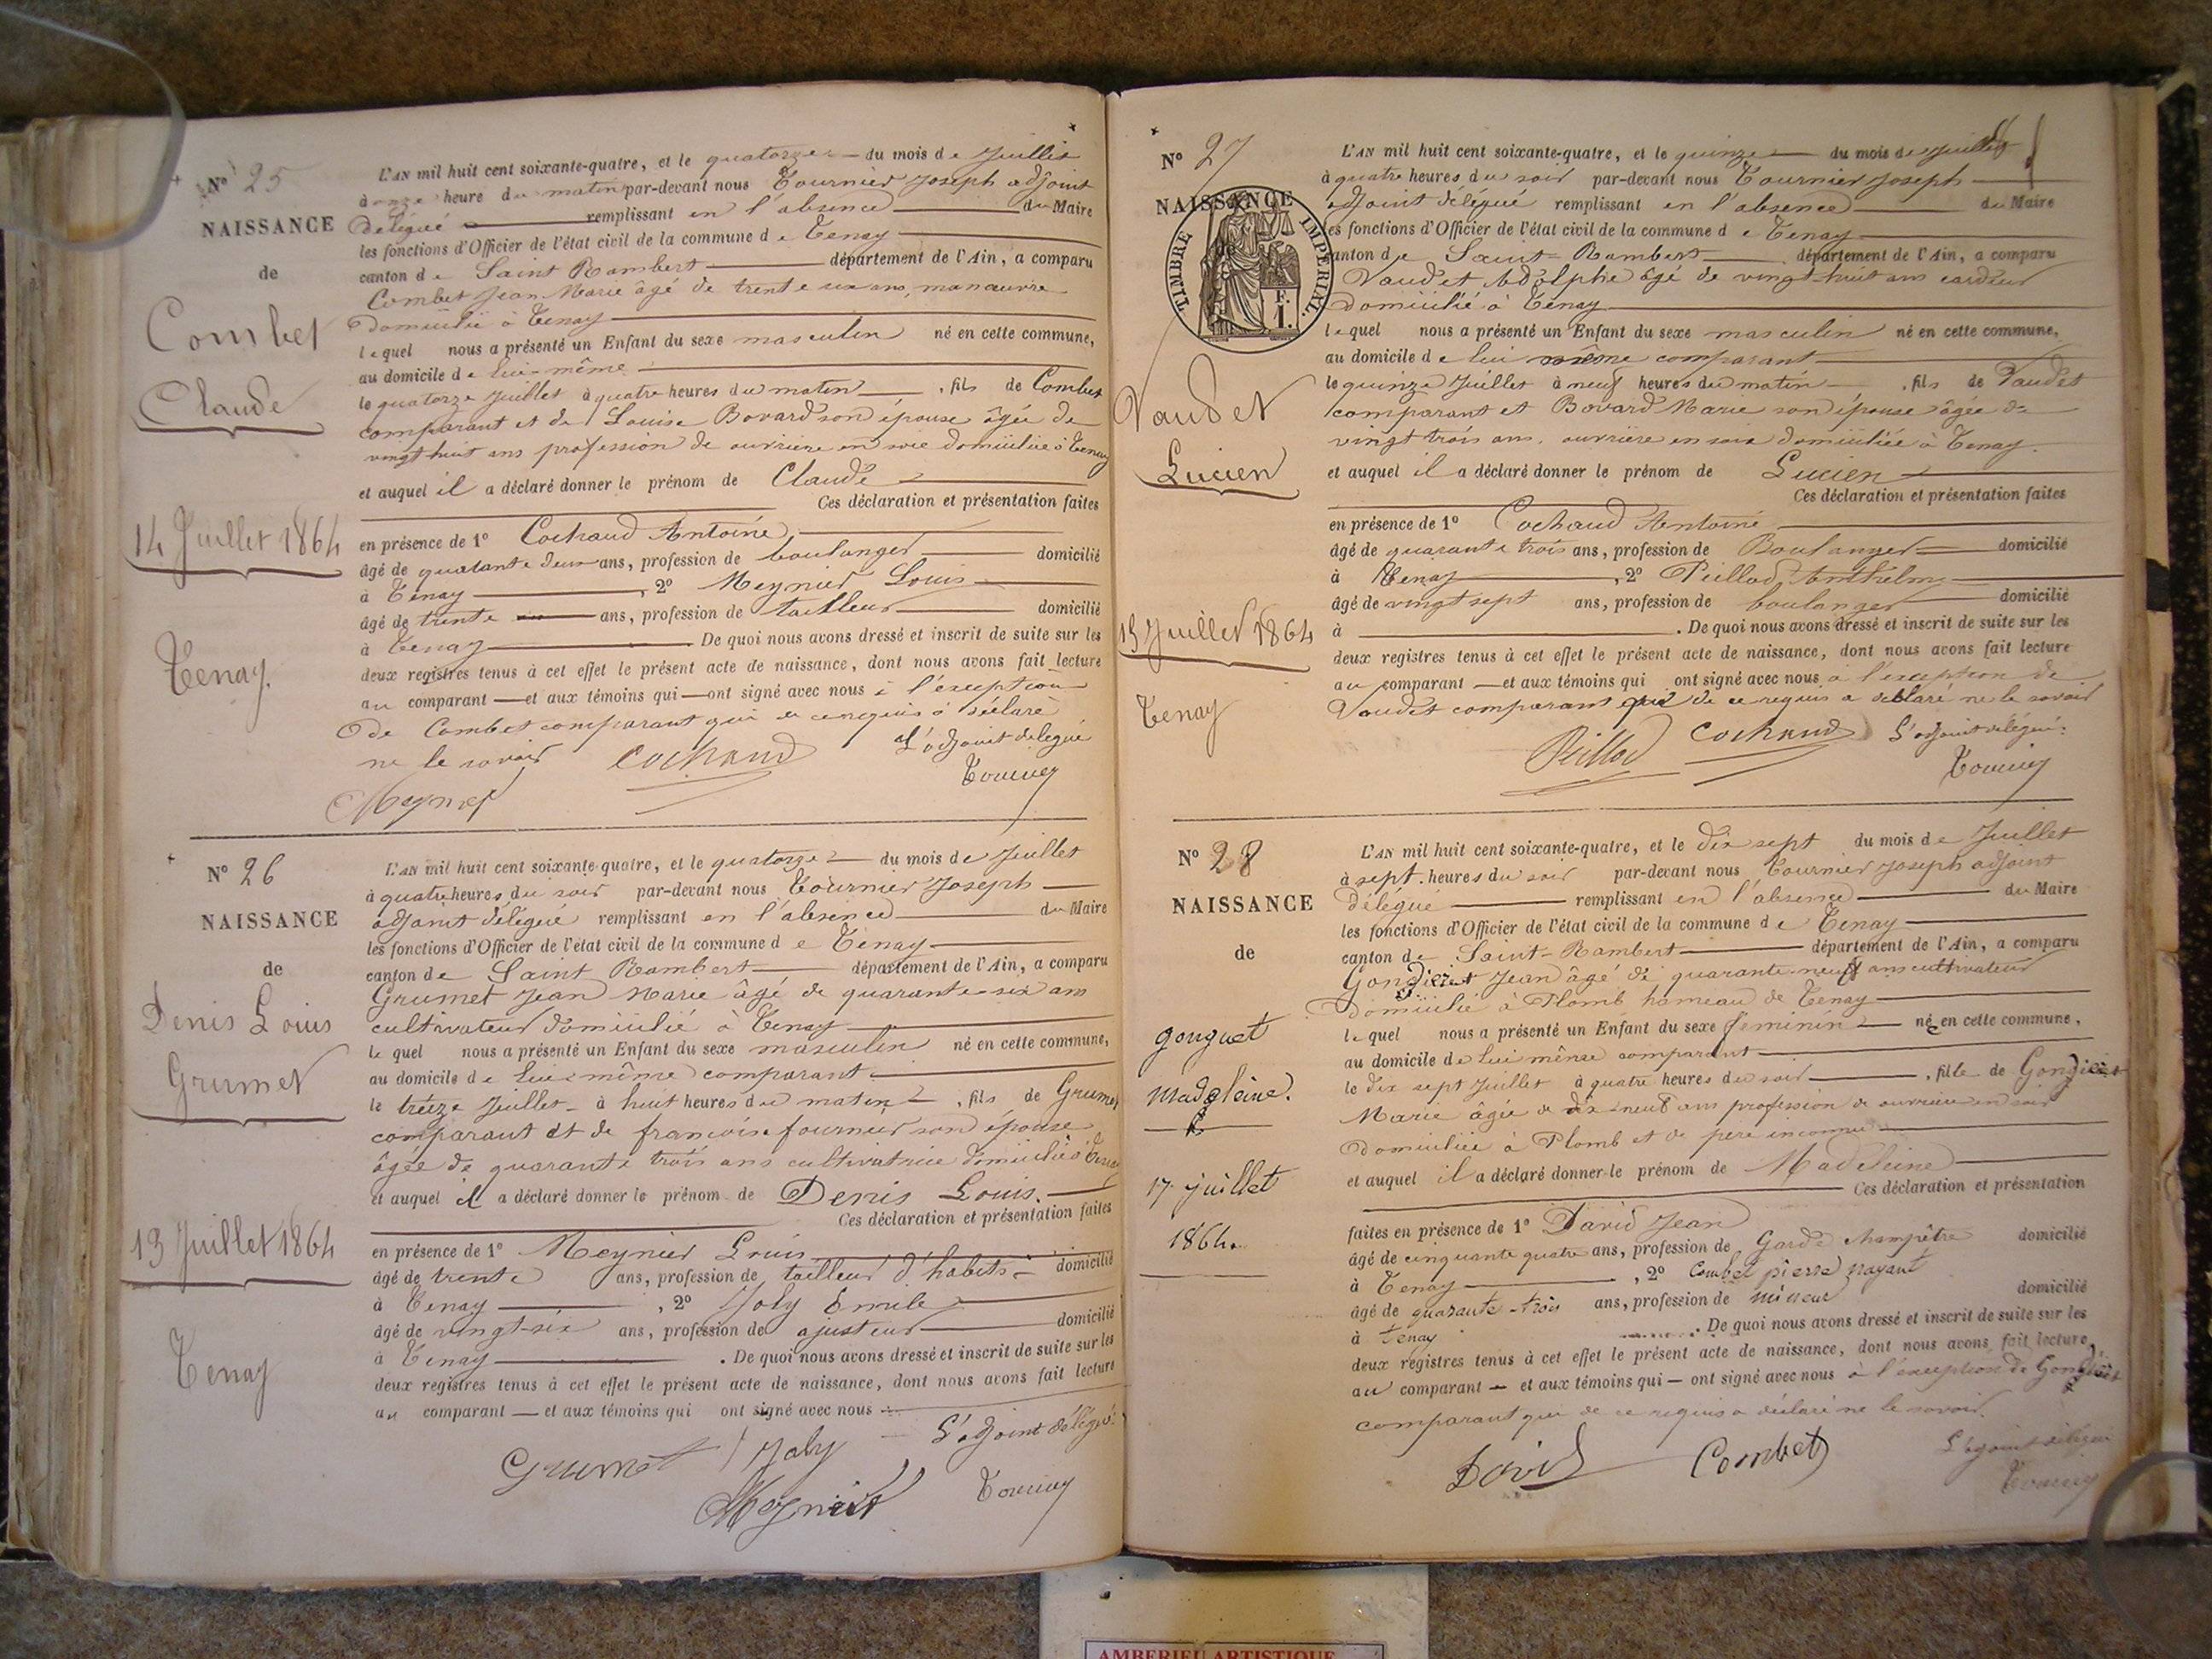 N° 25
NAISSANCE
de
Combet
Claude
14 Juillet 1864
Tenay.
L'AN mil huit cent soixante-quatre, et le quatorze du mois de Juillet
à onze heure du matin par-devant nous Tournier Joseph adjoint
délégué remplissant en l'absence du Maire
les fonctions d'Officier de l'état civil de la commune de Tenay
canton de Saint Rambert département de l'Ain, a comparu
Combet Jean Marie âgé de trente six ans, manœuvre
domicilié à Tenay
lequel nous a présenté un Enfant du sexe masculin né en cette commune,
au domicile de lui-même
le quatorze Juillet à quatre heures du matin, fils de Combet
comparant et de Louise Bovard son épouse âgée de
vingt huit ans profession de ouvrière en soie domiciliée à Tenay
et auquel il a déclaré donner le prénom de Claude
Ces déclaration et présentation faites
en présence de 1° Cochaud Antoine
âgé de quarante deux ans, profession de boulanger domicilié
à Tenay, 2° Meynier Louis
âgé de trente ans, profession de tailleur domicilié
à Tenay. De quoi nous avons dressé et inscrit de suite sur les
deux registres tenus à cet effet le présent acte de naissance, dont nous avons fait lecture
au comparant et aux témoins qui ont signé avec nous à l'exception
de Combet comparant qui de ce requis a déclaré
ne le savoir Cochaud L'adjoint délégué
Meynier Tournier
N° 26
NAISSANCE
de
Denis Louis
Grumet
13 Juillet 1864
Tenay
L'AN mil huit cent soixante-quatre, et le quatorze du mois de Juillet
à quatre heures du soir par-devant nous Tournier Joseph
adjoint délégué remplissant en l'absence du Maire
les fonctions d'Officier de l'état civil de la commune de Tenay
canton de Saint Rambert département de l'Ain, a comparu
Grumet Jean Marie âgé de quarante-six ans
cultivateur domicilié à Tenay
lequel nous a présenté un Enfant du sexe masculin né en cette commune,
au domicile de lui-même comparant
le treize Juillet à huit heures du matin, fils de Grumet
comparant et de françoise fournier son épouse
âgée de quarante trois ans cultivatrice domiciliée à Tenay
et auquel il a déclaré donner le prénom de Denis Louis.
Ces déclaration et présentation faites
en présence de 1° Meynier Louis
âgé de trente ans, profession de tailleur d'habits domicilié
à Tenay, 2° Joly Emile
âgé de vingt-six ans, profession de ajusteur domicilié
à Tenay. De quoi nous avons dressé et inscrit de suite sur les
deux registres tenus à cet effet le présent acte de naissance, dont nous avons fait lecture
au comparant et aux témoins qui ont signé avec nous
Grumet Joly L'adjoint délégué
Meynier Tournier
N° 27
NAISSANCE
TIMBRE IMPERIAL.
F.
1.
Vaudet
Lucien
15 Juillet 1864
Tenay
L'AN mil huit cent soixante-quatre, et le quinze du mois de Juillet
à quatre heures du soir par-devant nous Tournier Joseph
adjoint délégué remplissant en l'absence du Maire
les fonctions d'Officier de l'état civil de la commune de Tenay
canton de Saint-Rambert département de l'Ain, a comparu
Vaudet Adolphe âgé de vingt-huit ans cardeur
domicilié à Tenay
lequel nous a présenté un Enfant du sexe masculin né en cette commune,
au domicile de lui même comparant
le quinze Juillet à neuf heures du matin, fils de Vaudet
comparant et Bovard Marie son épouse âgée de
vingt trois ans, ouvrière en soie domiciliée à Tenay.
et auquel il a déclaré donner le prénom de Lucien
Ces déclaration et présentation faites
en présence de 1° Cochaud Antoine
âgé de quarante trois ans, profession de Boulanger domicilié
à Tenay, 2° Peillod Anthelme
âgé de vingt sept ans, profession de boulanger domicilié
à . De quoi nous avons dressé et inscrit de suite sur les
deux registres tenus à cet effet le présent acte de naissance, dont nous avons fait lecture
au comparant et aux témoins qui ont signé avec nous à l'exception de
Vaudet comparant qui de ce requis a déclaré ne le savoir
Peillod Cochaud L'adjoint délégué
Tournier
N° 28
NAISSANCE
de
gonguet
madeleine.
17 juillet
1864.
L'AN mil huit cent soixante-quatre, et le dix sept du mois de Juillet
à sept heures du soir par-devant nous Tournier Joseph adjoint
délégué remplissant en l'absence du Maire
les fonctions d'Officier de l'état civil de la commune de Tenay
canton de Saint-Rambert département de l'Ain, a comparu
Jean âgé de quarante-neuf ans cultivateur
domicilié à Plomb hameau de Tenay
lequel nous a présenté un Enfant du sexe féminin née en cette commune,
au domicile de lui même comparant
le dix sept Juillet à quatre heures du soir, fille de
Marie âgée de dix-neuf ans profession de ouvrière en soie
domiciliée à Plomb et de père inconnu
et auquel il a déclaré donner le prénom de Madeleine
Ces déclaration et présentation
faites en présence de 1° David Jean
âgé de cinquante quatre ans, profession de Garde champêtre domicilié
à Tenay, 2° Combet pierre nayant
âgé de quarante-trois ans, profession de mineur domicilié
à tenay. De quoi nous avons dressé et inscrit de suite sur les
deux registres tenus à cet effet le présent acte de naissance, dont nous avons fait lecture
au comparant et aux témoins qui ont signé avec nous à l'exception de
comparant qui de ce requis a déclaré ne le savoir.
David Combet L'adjoint délégué
Tournier
AMBERIEU ARTISTIQUE